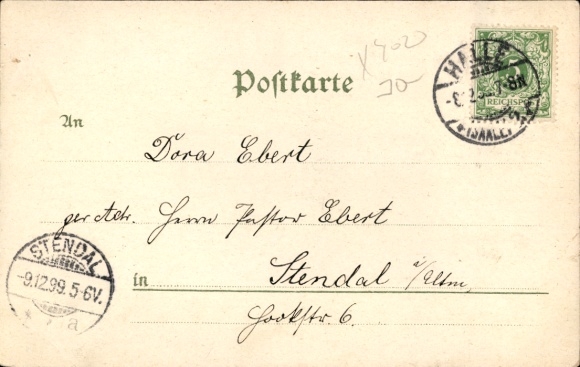 Postkarte
HALLE
(SAALE)
REICHSPOST
An
Dora Ebert
per Adr. Herrn Pastor Ebert
in Stendal i/Altm.
STENDAL
9.12.99. 5-6V.
a